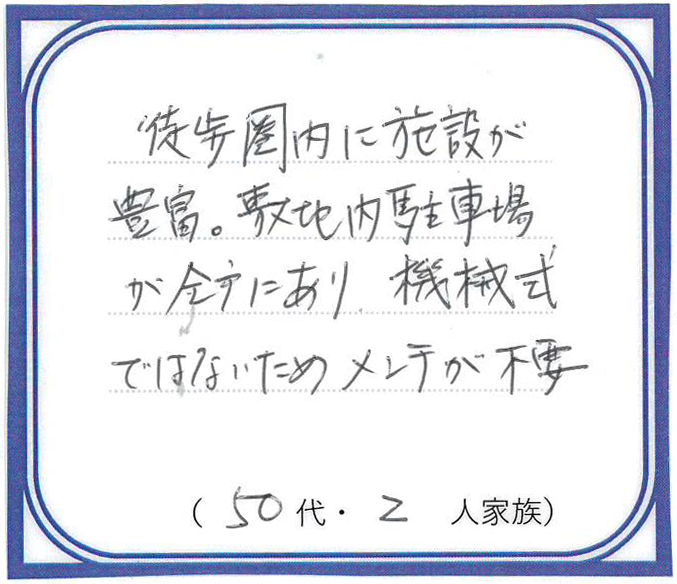 徒歩圏内に施設が
豊富。敷地内駐車場
が全戸にあり 機械式
ではないためメンテが不要
(50代・2人家族)